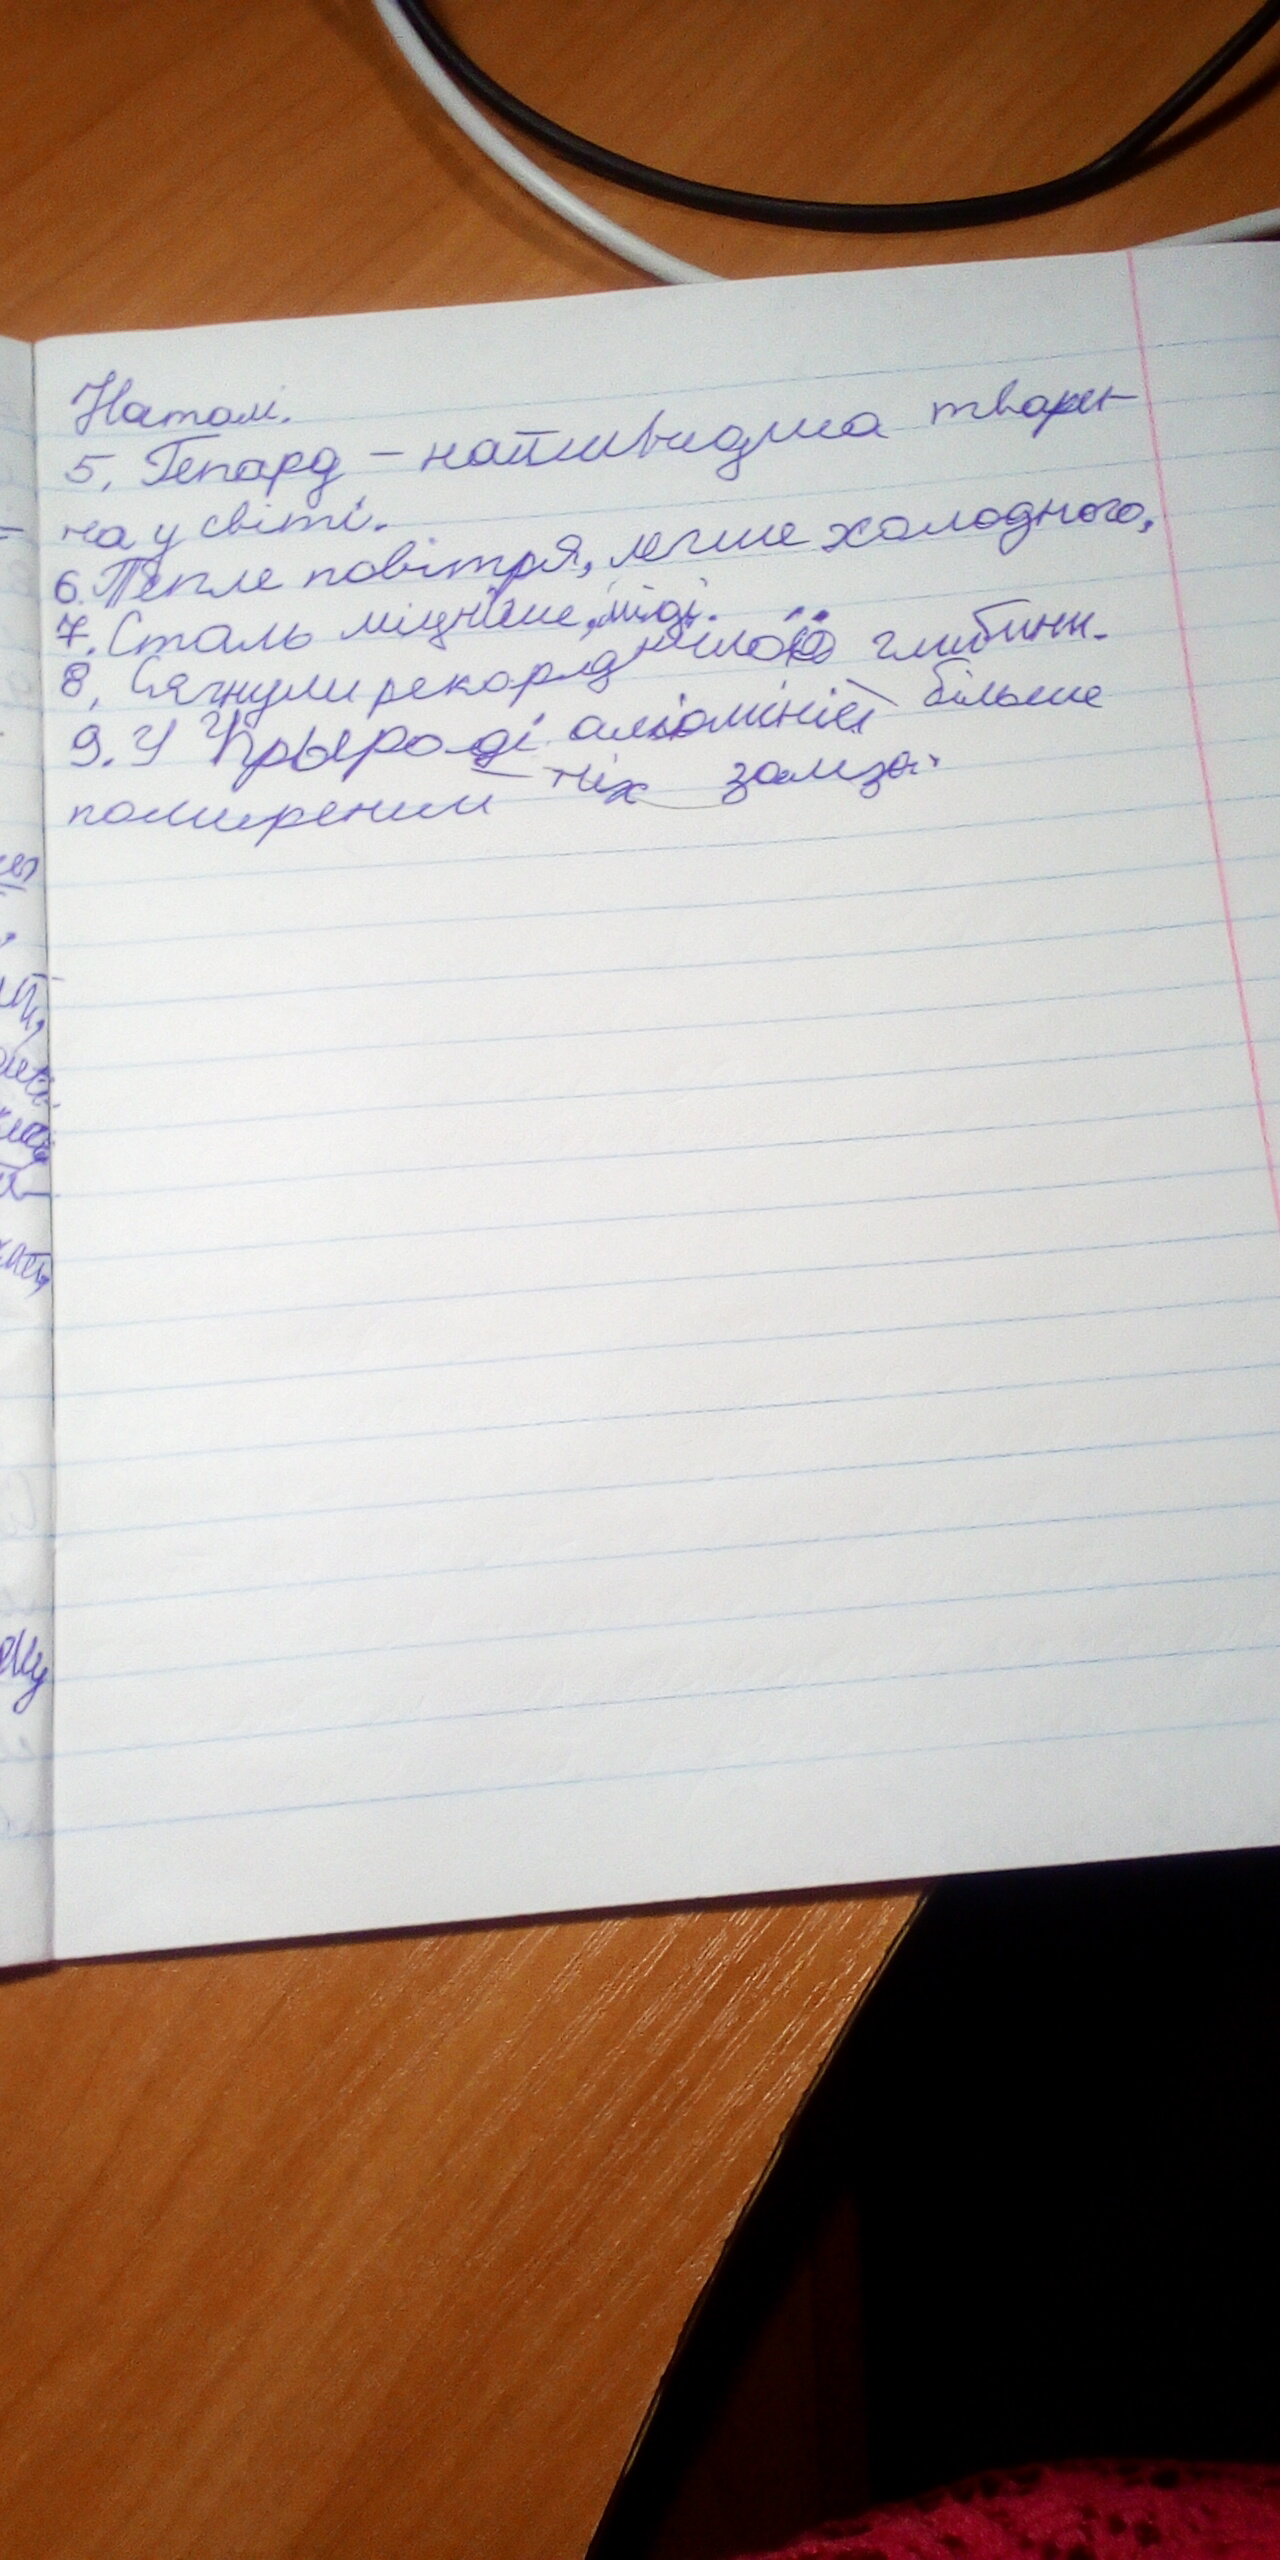 Наталі.
5. Гепард – найшвидша твари-
на у світі.
6. Тепле повітря, легше холодного,
7. Сталь міцніше, міді.
8, Сягнули рекордн глибини.
9. У прыроді алюміній більше
поширеним ніж залізо.